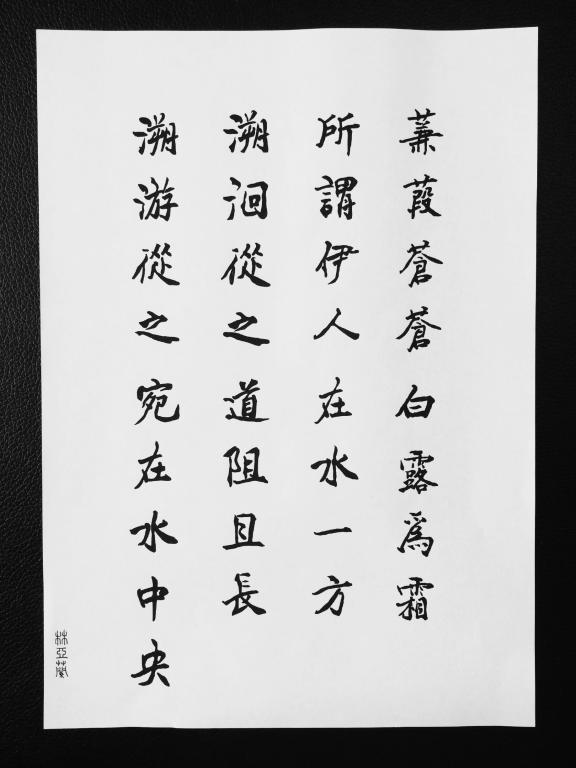 蒹葭蒼蒼白露為霜
所謂伊人在水一方
溯洄從之道阻且長
溯游從之宛在水中央
林亞蘭